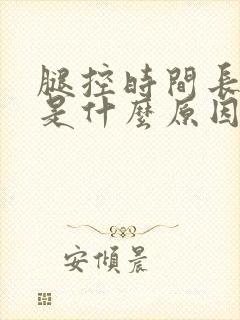 腿控時間長
是什麼原因
安傾晨